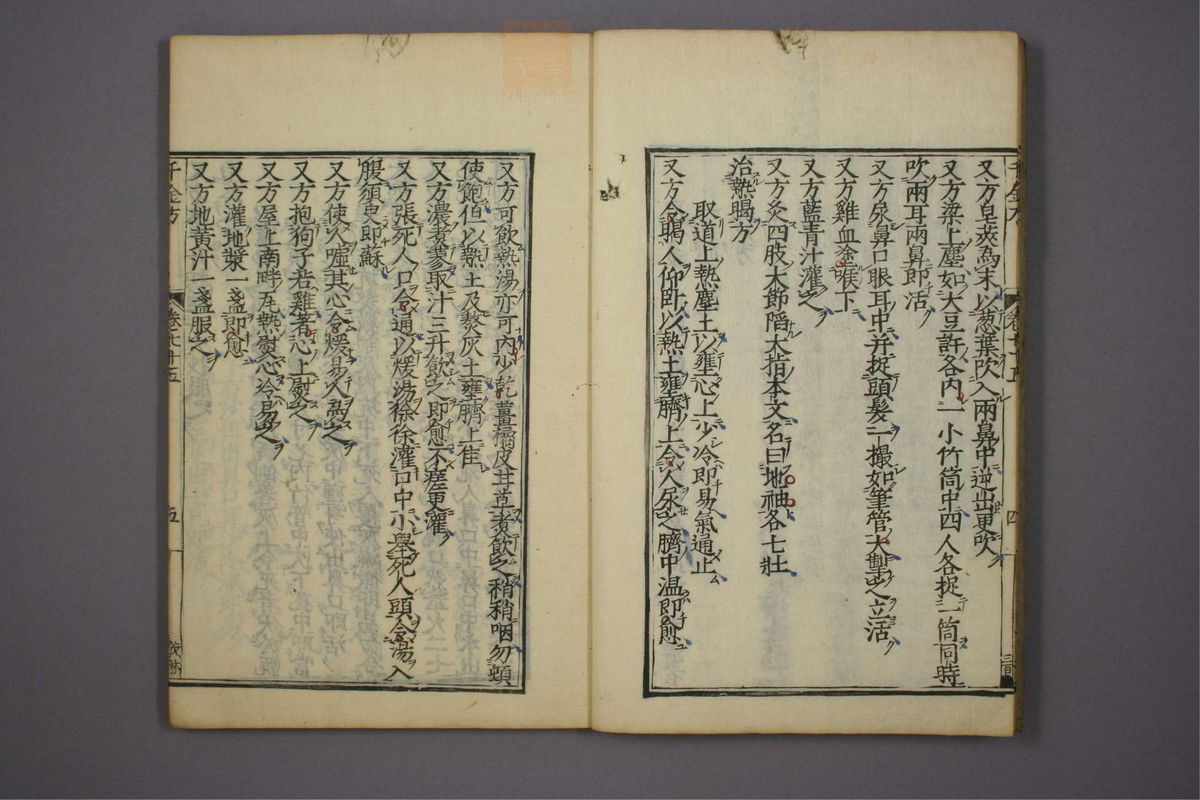 千金方 卷七十五 四
又方皂莢為末以葱葉吹入兩鼻中逆出更吹
又方梁上塵如大豆許各內一小竹筒中四人各捉一筒同時
吹兩耳兩鼻即活
又方尿鼻口眼耳中并捉頭髮一撮如筆管大掣之立活
又方雞血塗喉下
又方藍青汁灌之
又方炙四肢大節陷大指本文名曰地袖各七壯
治熱暍方
取道上熱塵土以壅心上少冷即易氣通止
又方令暍人仰卧以熱土壅臍上令人尿之臍中溫即愈
又方可飲熱湯亦可內少乾薑橘皮甘草煮飲之稍稍咽勿頓
使飽伯以熱土及熬灰土壅臍上佳
又方濃煮蓼取汁三升飲之即愈不瘥更灌
又方張死人口令通以煖湯徐徐灌口中小舉死人頭令湯入
腹須臾即蘇
又方使人噓其心令煖易人為之
又方抱狗子若雞著心上熨之
又方屋上南畔瓦熱慰心冷易之
又方灌地漿一盞即愈
又方地黃汁一盞服之
千金方 卷七十五 五